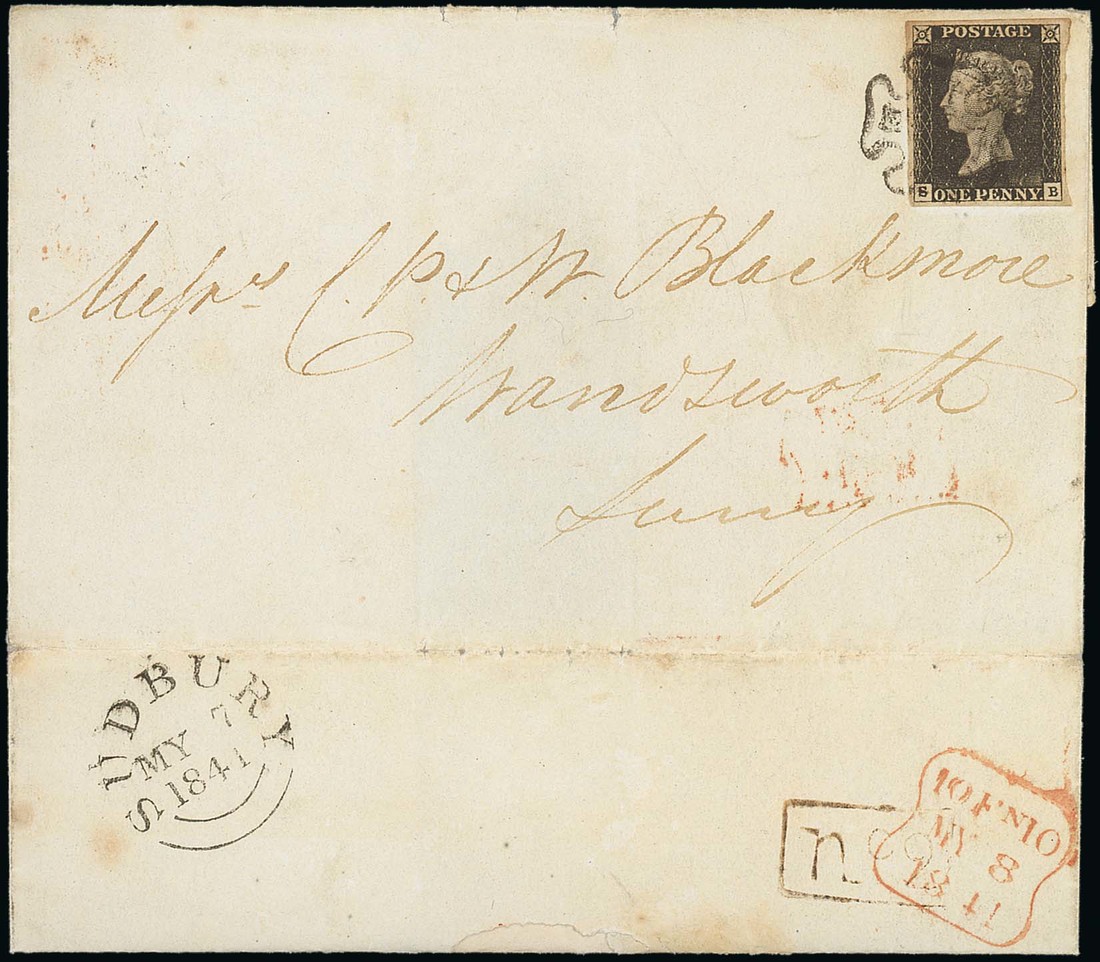 POSTAGE
S ONE PENNY. B
Messrs C. P. & W. Blackmore
Wandsworth
Surrey
SUDBURY
MY 7
1841
10 FN 10
MY 8
1841
n